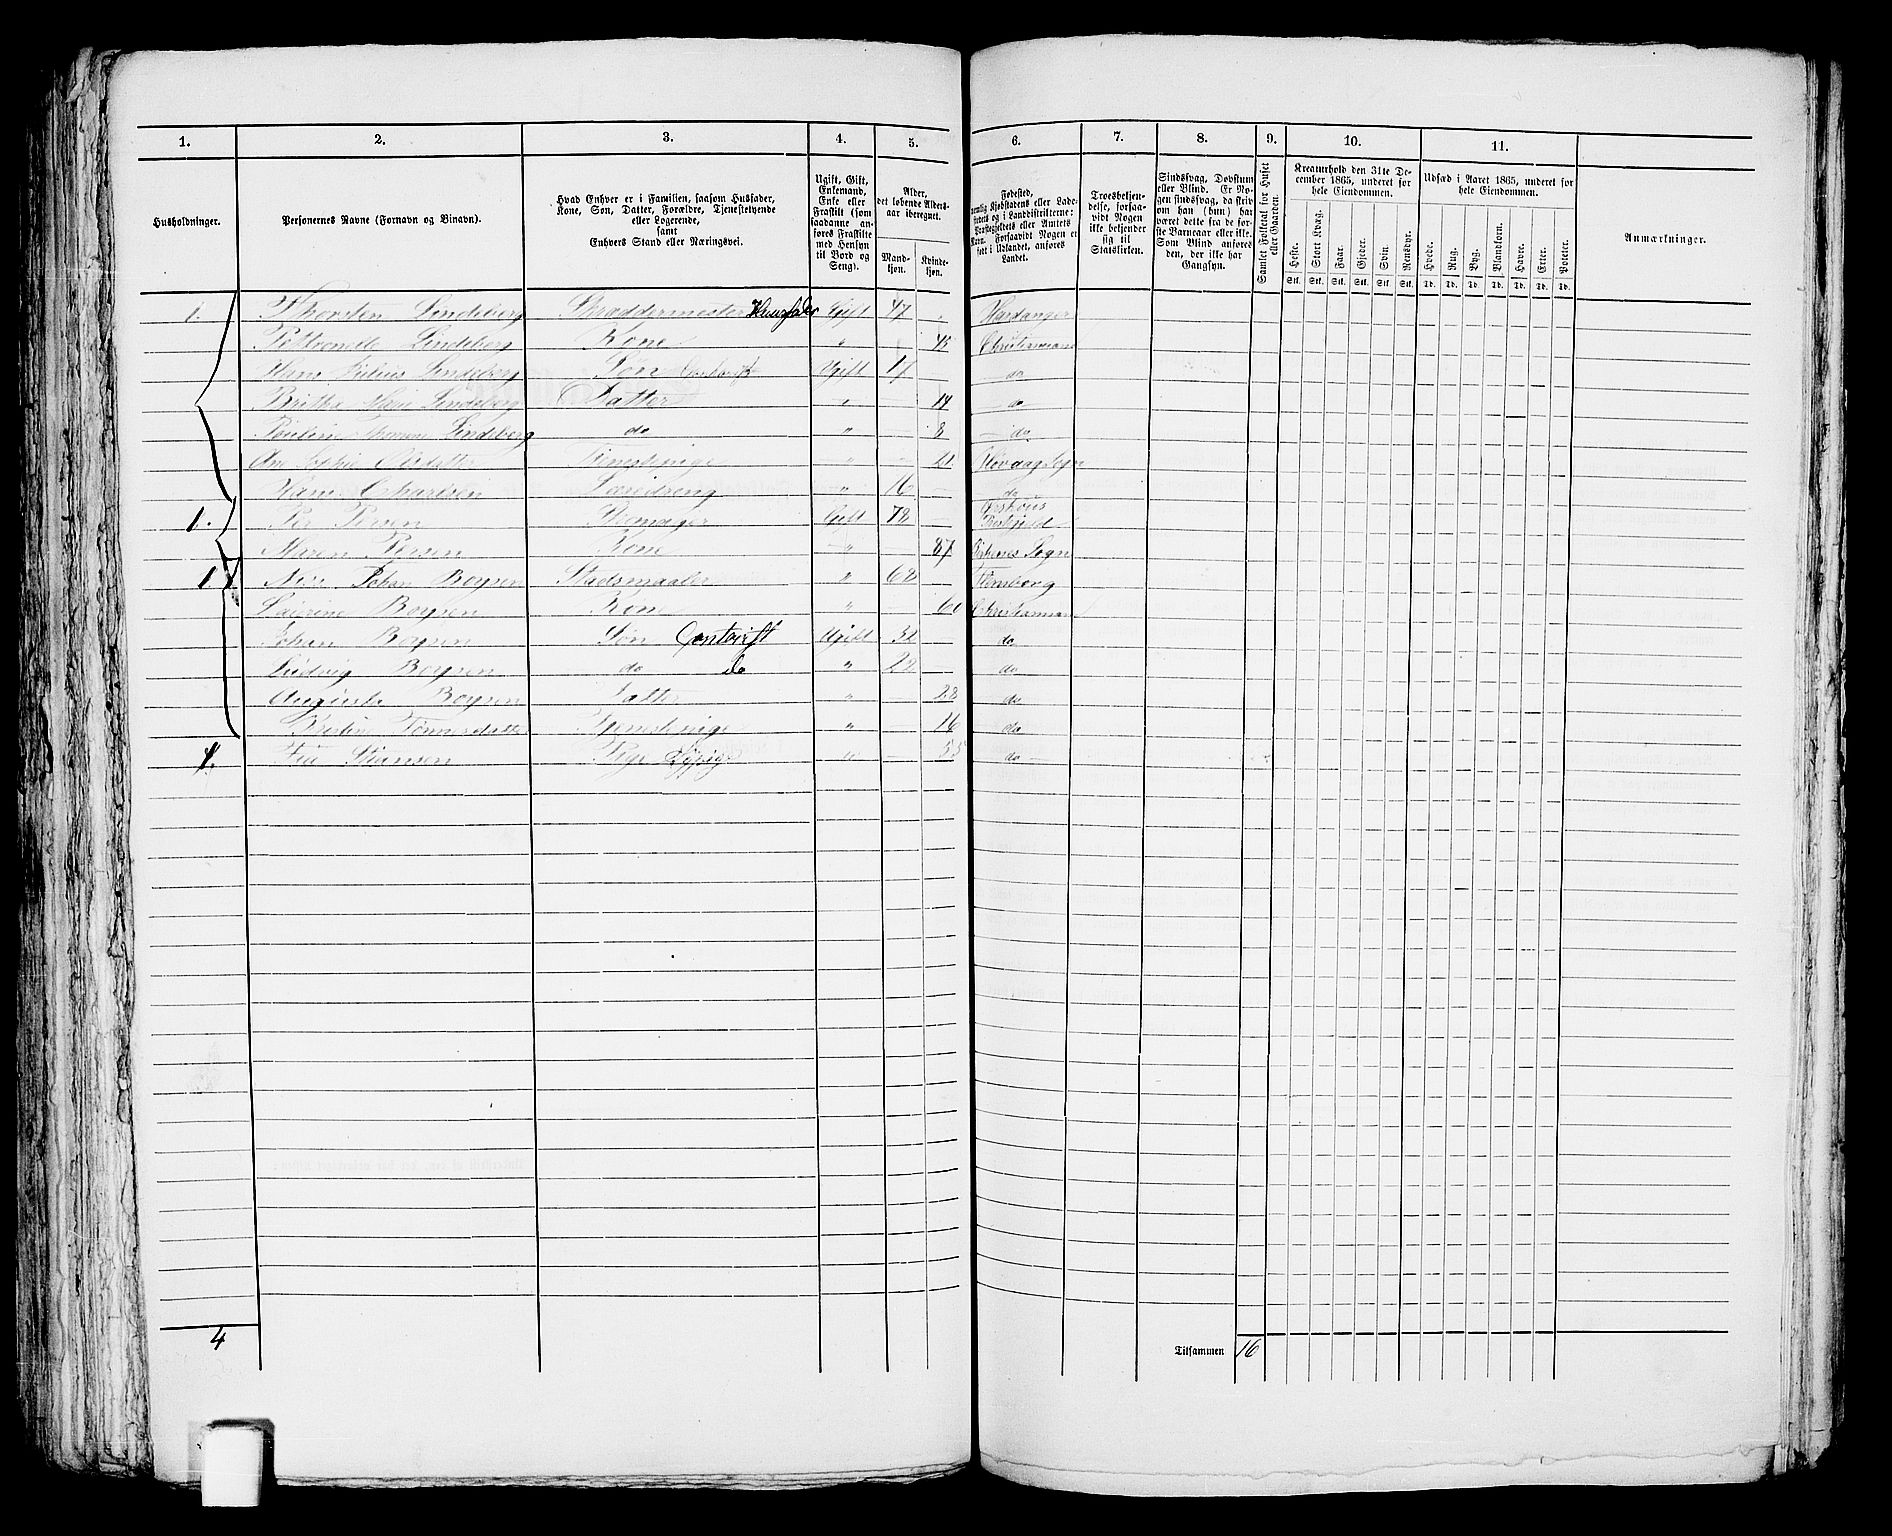 1. 2. 3. 4. 5. 6. 7. 8. 9. 10. 11.
Husholdninger.
Personernes Navne (Fornavn og Binavn).
Hvad Enhver er i Familien, saasom Husfader,
Kone, Søn, Datter, Forældre, Tjenestetyende
eller Logerende,
samt
Enhvers Stand eller Næringsvei.
Ugift, Gift,
Enkemand,
Enke eller
Fraskilt (som
saadanne an-
føres Fraskilte
med Hensyn
til Bord og
Seng).
Alder,
det løbende Alders-
aar iberegnet.
Mand-
kjøn.
Kvinde-
kjøn.
Fødested,
nemlig Kjøbstadens eller Lade-
stedets og i Landdistrikterne:
Præstegjeldets eller Amtets
Navn. Forsaavidt Nogen er
født i Udlandet, anføres
Landet.
Troesbekjen-
delse, forsaa-
vidt Nogen
ikke bekjender
sig til
Statskirken.
Sindssvag, Døvstum
eller Blind. Er No-
gen sindssvag, da skriv
om han (hun) har
været dette fra de før-
ste Barneaar eller ikke.
Som Blind anføres
den, der ikke har
Gangsyn.
Samlet Folketal for Huset
eller Gaarden.
Kreaturhold den 31te De-
cember 1865, underet for
hele Eiendommen.
Heste. Stort Kvæg. Faar. Gjeder. Svin. Rensdyr.
Stk. Stk. Stk. Stk. Stk. Stk.
Udsæd i Aaret 1865, underet for
hele Eiendommen.
Hvede. Rug. Byg. Blandkorn. Havre. Erter. Poteter.
Td. Td. Td. Td. Td. Td. Td.
Anmærkninger.
1. Thorsten Lindeberg Skræddermester Huusfader Gift 47 Hardanger
Pettronelle Lindeberg Kone " 45 Christiansand
Hans Julius Lindeberg Søn Contorist Ugift 17 do
Lindeberg Datter " 14 do
Lindeberg do " 8 do
Tjenestepige " 21 Høvaag Sogn
Hans Charlsen Læredreng " 16 do
1. Per Persen Gift 78
Maren Persen Kone " 87 Birkenes Sogn
1 Johan Boysen Stadsmaaler " 62 Flensborg
Boysen Kone " 60 Christiansand
Johan Boysen Søn Contorist Ugift 31 do
Ludvig Boysen do do " 22 do
Augusta Boysen Datter " 28 do
Tønnesdatter Tjenestepige " 16 do
1. Pige " 55 do
4
Tilsammen 16